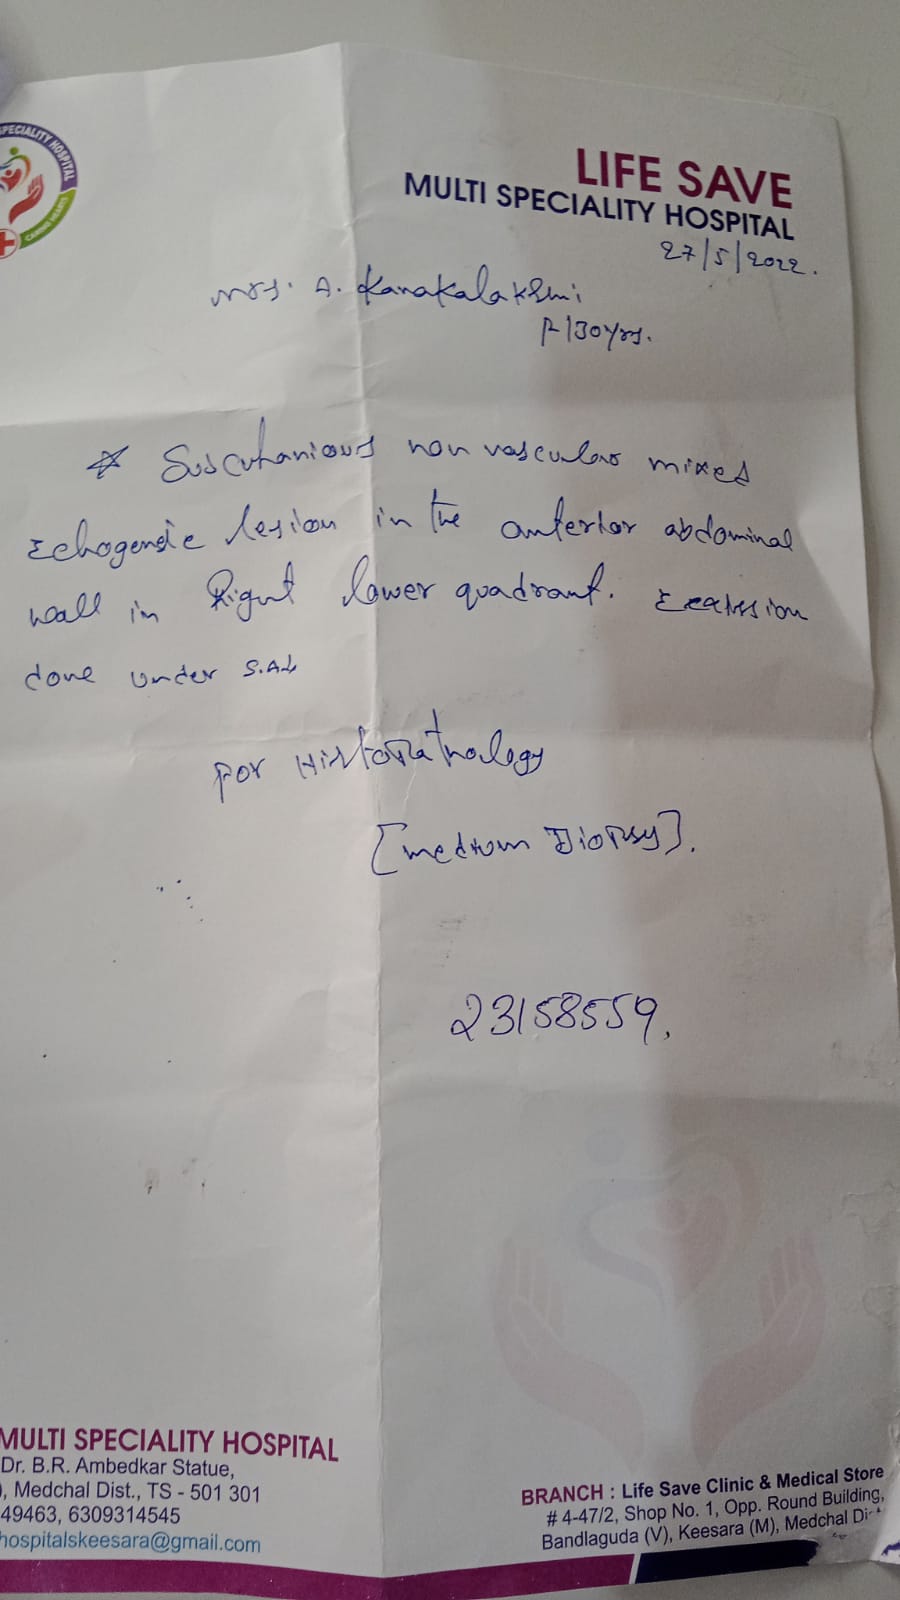 SPECIALITY HOSPITAL
CARING HEARTS
LIFE SAVE
MULTI SPECIALITY HOSPITAL
27/5/2022.
Mrs. A. Kanakalakshmi
F/30yrs.
* Subcutanious non vascular mixed
Echogenic lesion in the anterior abdominal
wall in Right lower quadrant. Excission
done under S.A
For Histopathology
[medium Biopsy].
23158559.
MULTI SPECIALITY HOSPITAL
Dr. B.R. Ambedkar Statue,
), Medchal Dist., TS - 501 301
49463, 6309314545
hospitalskeesara@gmail.com
BRANCH : Life Save Clinic & Medical Store
# 4-47/2, Shop No. 1, Opp. Round Building,
Bandlaguda (V), Keesara (M), Medchal Dist